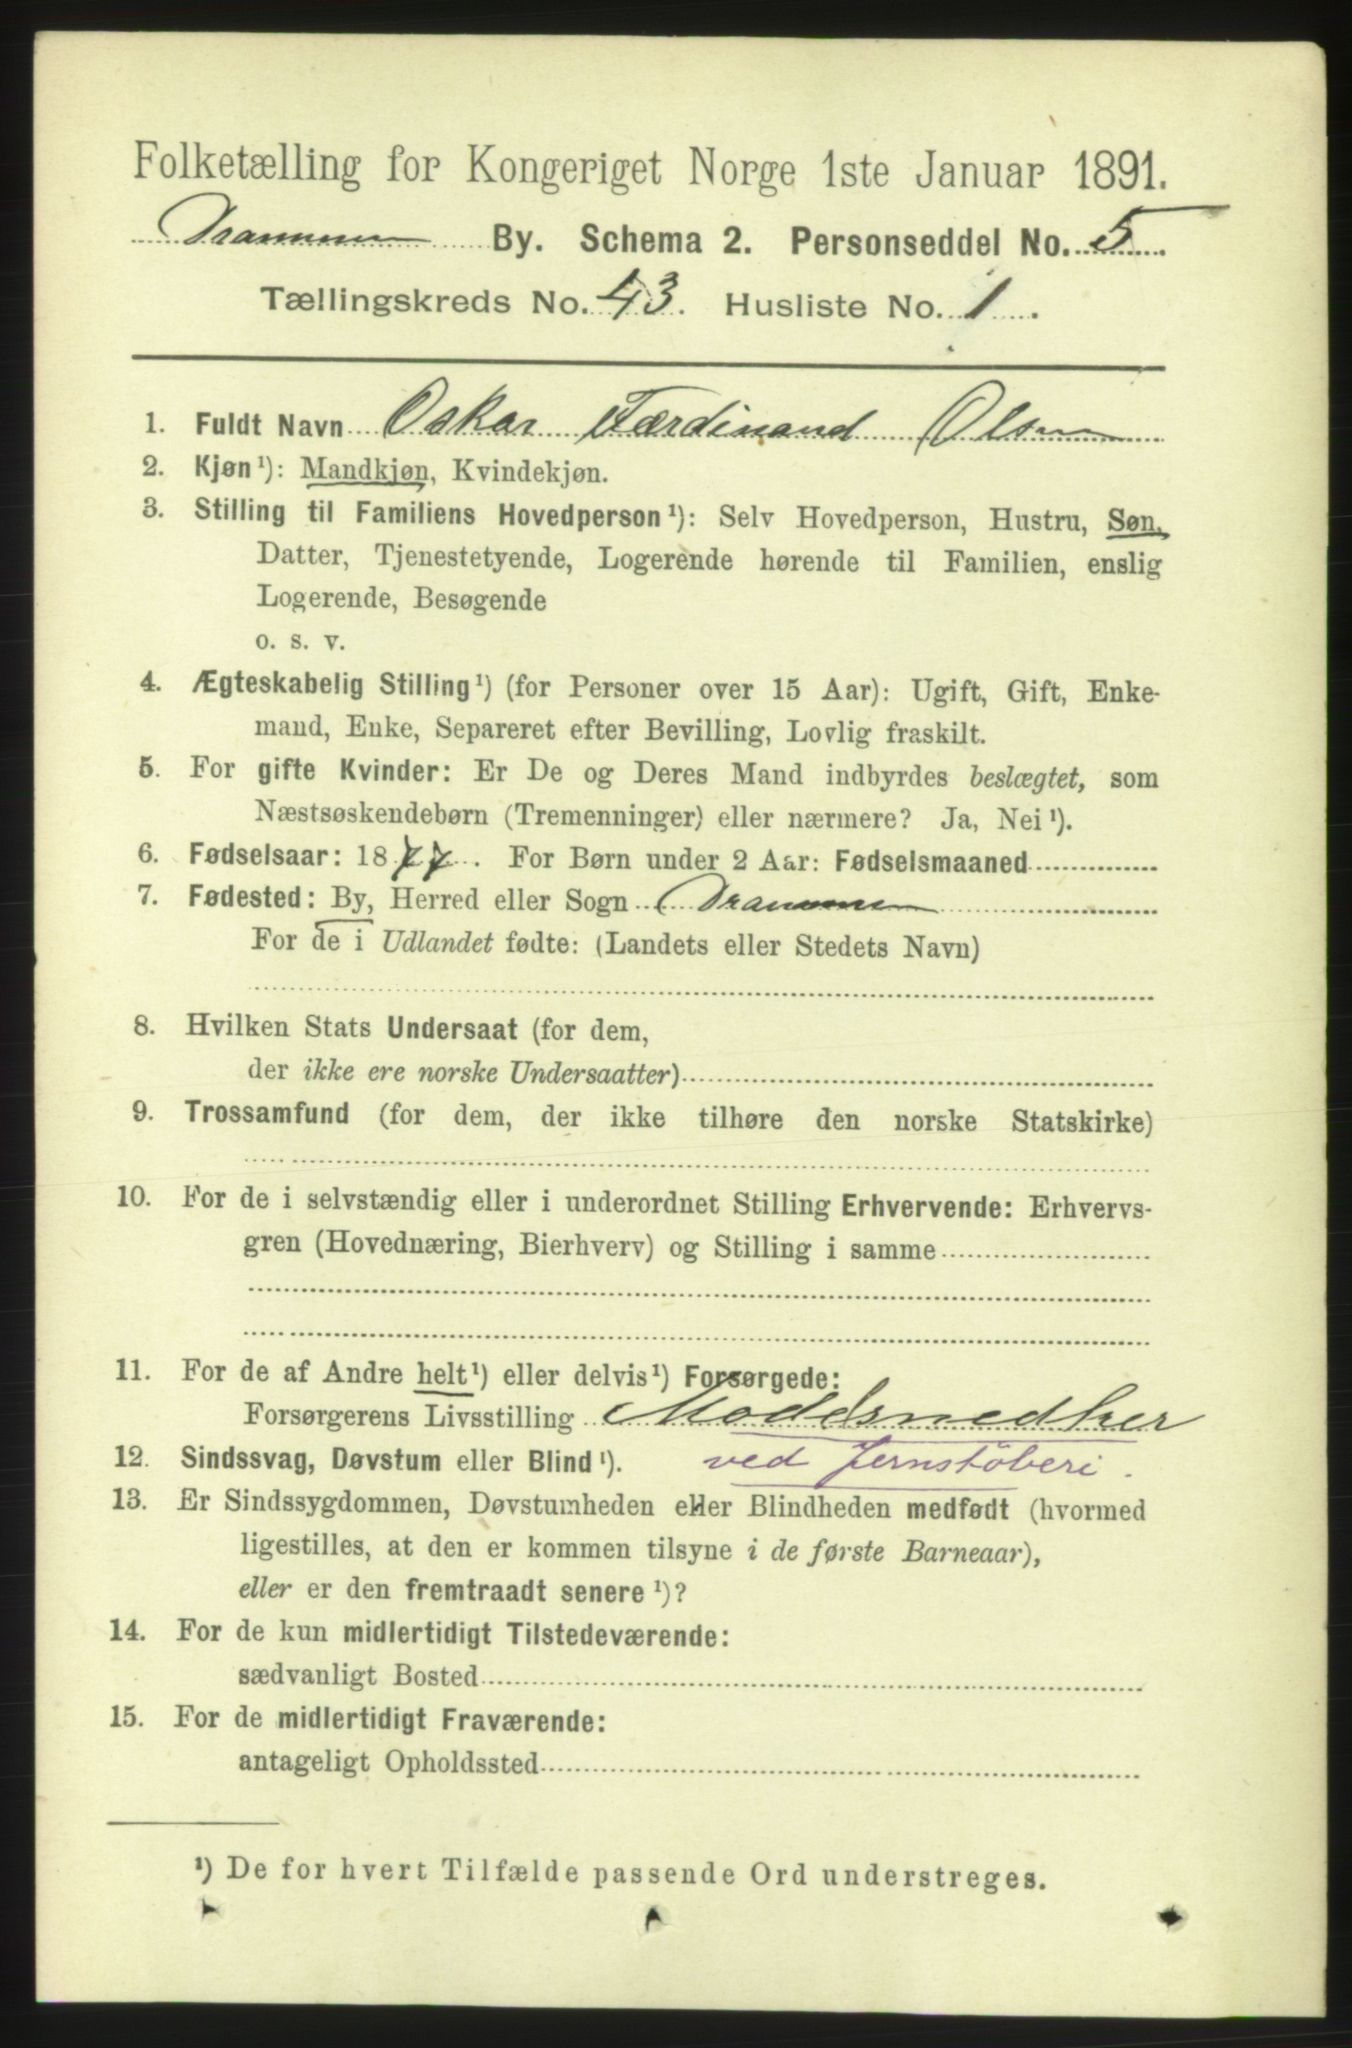 Folketælling for Kongeriget Norge 1ste Januar 1891.
Drammen By. Schema 2. Personseddel No. 5
Tællingskreds No. 43. Husliste No. 1.
1. Fuldt Navn Oskar Færdinand Olsen
2. Kjøn¹): Mandkjøn, Kvindekjøn.
3. Stilling til Familiens Hovedperson¹): Selv Hovedperson, Hustru, Søn,
Datter, Tjenestetyende, Logerende hørende til Familien, enslig
Logerende, Besøgende
o. s. v.
4. Ægteskabelig Stilling¹) (for Personer over 15 Aar): Ugift, Gift, Enke-
mand, Enke, Separeret efter Bevilling, Lovlig fraskilt.
5. For gifte Kvinder: Er De og Deres Mand indbyrdes beslægtet, som
Næstsøskendebørn (Tremenninger) eller nærmere? Ja, Nei¹).
6. Fødselsaar: 1877. For Børn under 2 Aar: Fødselsmaaned
7. Fødested: By, Herred eller Sogn Drammen
For de i Udlandet fødte: (Landets eller Stedets Navn)
8. Hvilken Stats Undersaat (for dem,
der ikke ere norske Undersaatter)
9. Trossamfund (for dem, der ikke tilhøre den norske Statskirke)
10. For de i selvstændig eller i underordnet Stilling Erhvervende: Erhvervs-
gren (Hovednæring, Bierhverv) og Stilling i samme
11. For de af Andre helt¹) eller delvis¹) Forsørgede:
Forsørgerens Livsstilling Moddsnedker
12. Sindssvag, Døvstum eller Blind¹). ved Jernstøberi.
13. Er Sindssygdommen, Døvstumheden eller Blindheden medfødt (hvormed
ligestilles, at den er kommen tilsyne i de første Barneaar),
eller er den fremtraadt senere¹)?
14. For de kun midlertidigt Tilstedeværende:
sædvanligt Bosted
15. For de midlertidigt Fraværende:
antageligt Opholdssted
¹) De for hvert Tilfælde passende Ord understreges.